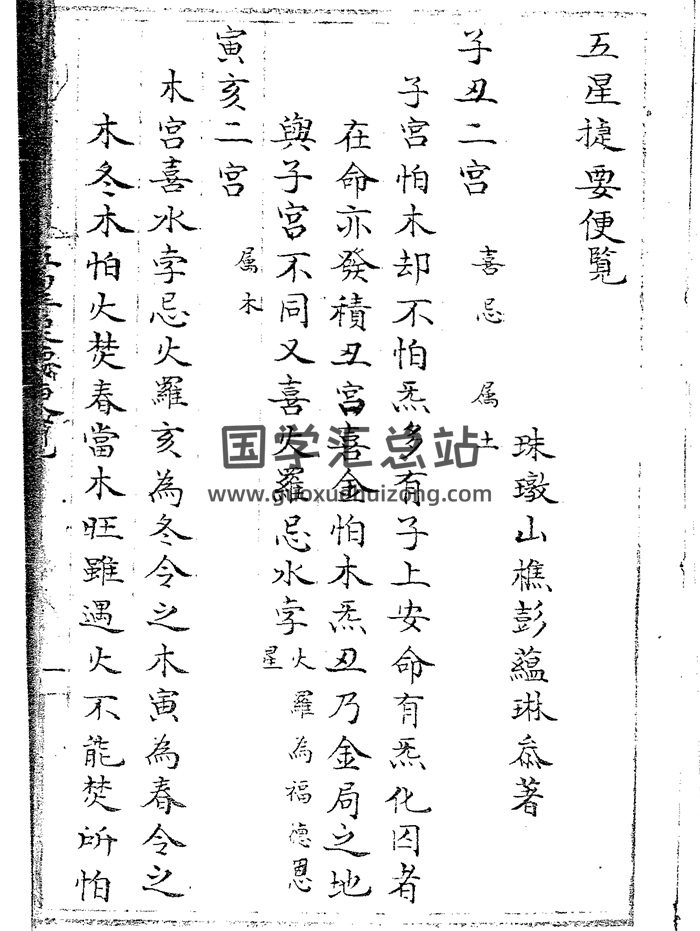 五星捷要便覽
珠璥山樵彭蘊琳叅著
子丑二宮 喜忌 属土
子宮怕木却不怕炁多有子上安命有炁化囚者
在命亦發積丑宮喜金怕木炁丑乃金局之地
與子宮不同又喜火羅忌水孛 火羅為福德恩星
寅亥二宮 属木
木宮喜水孛忌火羅亥為冬令之木寅為春令之
木冬木怕火焚春當木旺雖遇火不能焚所怕
一
国学汇总站
www.guoxuehuizong.com